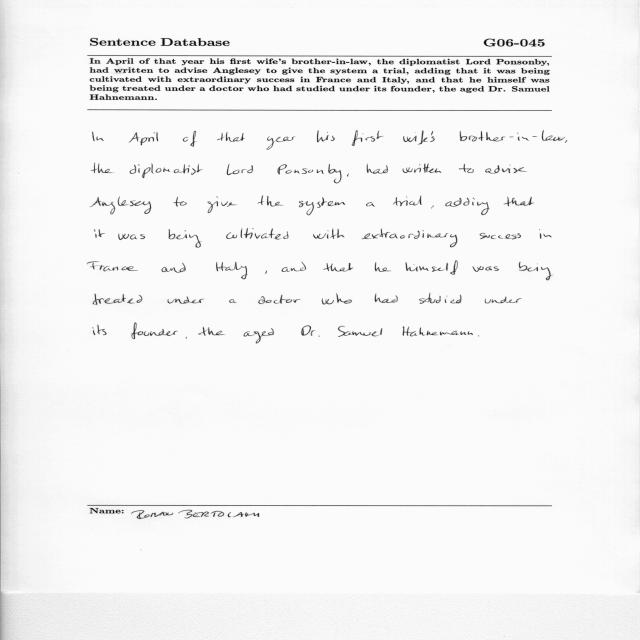 Sentence Database G06-045
In April of that year his first wife's brother-in-law, the diplomatist Lord Ponsonby,
had written to advise Anglesey to give the system a trial, adding that it was being
cultivated with extraordinary success in France and Italy, and that he himself was
being treated under a doctor who had studied under its founder, the aged Dr. Samuel
Hahnemann.
In April of that year his first wife's brother-in-law,
the diplomatist Lord Ponsonby, had written to advise
Anglesey to give the system a trial, adding that
it was being cultivated with extraordinary success in
France and Italy, and that he himself was being
treated under a doctor who had studied under
its founder, the aged Dr. Samuel Hahnemann.
Name: